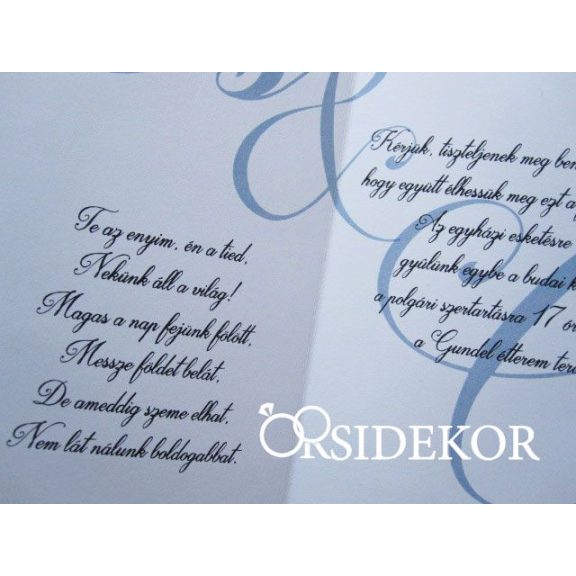 Te az enyim, én a tied,
Nekünk áll a világ!
Magas a nap fejünk fölött,
Messze földet belát,
De ameddig szeme elhat,
Nem lát nálunk boldogabbat.
Kérjük, tiszteljenek meg
hogy együtt élhessük meg ezt a
Az egyházi esketésre
gyűlünk egybe a budai
a polgári szertartásra 17
a Gundel étterem
ORSIDEKOR